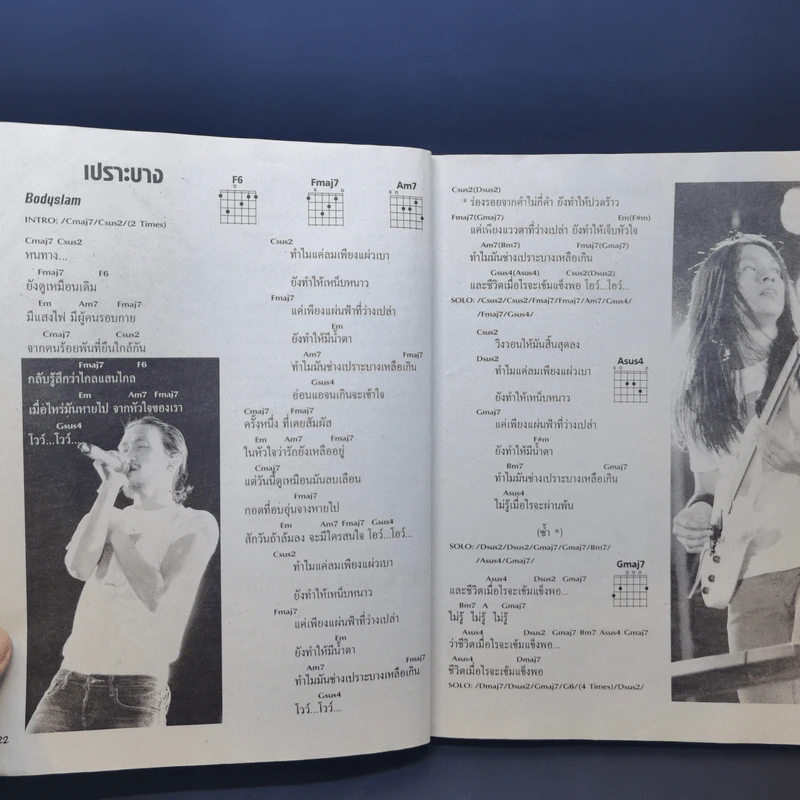 เปราะบาง
Bodyslam
F6
Fmaj7
Am7
INTRO: /Cmaj7/Csus2/(2 Times)
Cmaj7 Csus2
หนทาง...
Fmaj7 F6
ยังดูเหมือนเดิม
Em Am7 Fmaj7
มีแสงไฟ มีผู้คนรอบกาย
Cmaj7 Csus2
จากคนร้อยพันที่ยืนใกล้กัน
Fmaj7 F6
กลับรู้สึกว่าไกลแสนไกล
Em Am7 Fmaj7
เมื่อไหร่มันหายไป จากหัวใจของเรา
Gsus4
โวว์...โวว์...
22
Csus2
ทำไมแค่ลมเพียงแผ่วเบา
ยังทำให้เหน็บหนาว
Fmaj7
แค่เพียงแผ่นฟ้าที่ว่างเปล่า
Em
ยังทำให้มีน้ำตา
Am7 Fmaj7
ทำไมมันช่างเปราะบางเหลือเกิน
Gsus4
อ่อนแอจนเกินจะเข้าใจ
Cmaj7 Fmaj7
ครั้งหนึ่ง ที่เคยสัมผัส
Em Am7 Fmaj7
ในหัวใจว่ารักยังเหลืออยู่
Cmaj7
แต่วันนี้ดูเหมือนมันลบเลือน
Fmaj7
กอดที่อบอุ่นจางหายไป
Em Am7 Fmaj7 Gsus4
สักวันถ้าล้มลง จะมีใครสนใจ โอว์...โอว์...
Csus2
ทำไมแค่ลมเพียงแผ่วเบา
ยังทำให้เหน็บหนาว
Fmaj7
แค่เพียงแผ่นฟ้าที่ว่างเปล่า
Em
ยังทำให้มีน้ำตา
Am7 Fmaj7
ทำไมมันช่างเปราะบางเหลือเกิน
Gsus4
โวว์...โวว์...
Csus2(Dsus2)
* ร่องรอยจากคำไม่กี่คำ ยังทำให้ปวดร้าว
Fmaj7(Gmaj7) Em(F#m)
แค่เพียงแววตาที่ว่างเปล่า ยังทำให้เจ็บหัวใจ
Am7(Bm7) Fmaj7(Gmaj7)
ทำไมมันช่างเปราะบางเหลือเกิน
Gsus4(Asus4) Csus2(Dsus2)
และชีวิตเมื่อไรจะเข้มแข็งพอ โอว์...โอว์...
SOLO: /Csus2/Csus2/Fmaj7/Fmaj7/Am7/Gsus4/
/Fmaj7/Gsus4/
Csus2
วิงวอนให้มันสิ้นสุดลง
Dsus2
ทำไมแค่ลมเพียงแผ่วเบา
Asus4
ยังทำให้เหน็บหนาว
Gmaj7
แค่เพียงแผ่นฟ้าที่ว่างเปล่า
F#m
ยังทำให้มีน้ำตา
Bm7 Gmaj7
ทำไมมันช่างเปราะบางเหลือเกิน
Asus4
ไม่รู้เมื่อไรจะผ่านพ้น
(ซ้ำ *)
SOLO: /Dsus2/Dsus2/Gmaj7/Gmaj7/Bm7/
/Asus4/Gmaj7/
Gmaj7
Asus4 Dsus2 Gmaj7
และชีวิตเมื่อไรจะเข้มแข็งพอ...
Bm7 A Gmaj7
ไม่รู้ ไม่รู้ ไม่รู้
Asus4 Dsus2 Gmaj7 Bm7 Asus4 Gmaj7
ว่าชีวิตเมื่อไรจะเข้มแข็งพอ...
Asus4 Dmaj7
ชีวิตเมื่อไรจะเข้มแข็งพอ
SOLO: /Dmaj7/Dsus2/Gmaj7/G6/(4 Times)/Dsus2/